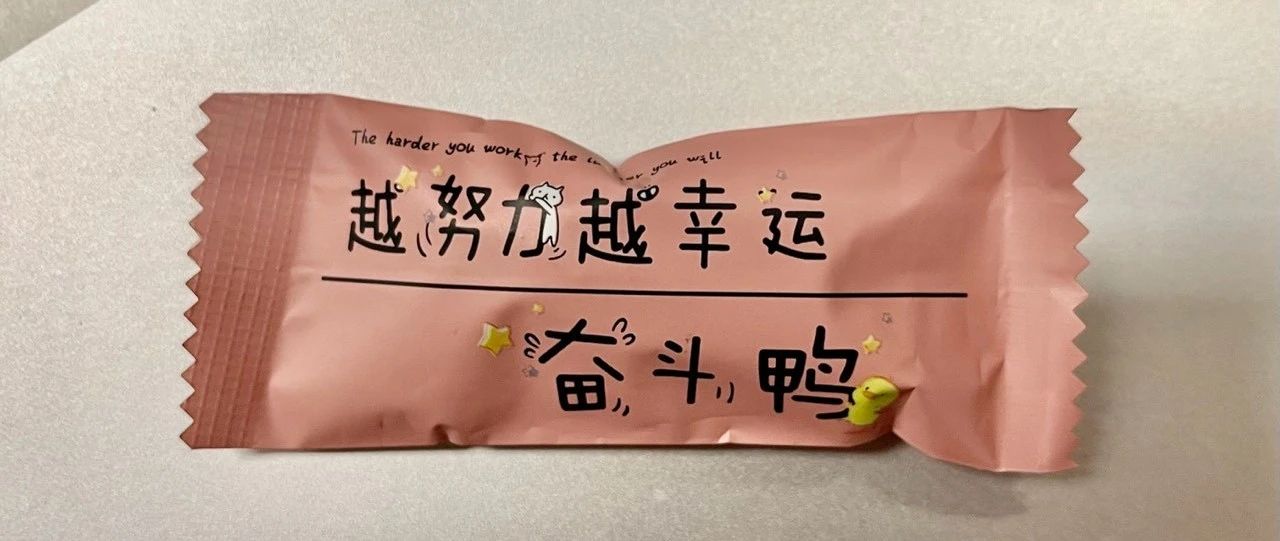 The harder you work the you will
越努力越幸运
奋斗鸭